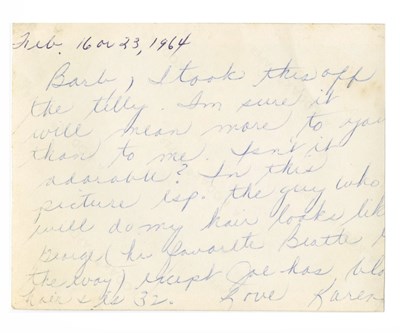 Feb. 16 or 23, 1964
Barb, I took this off
the telly. Im sure it
will mean more to you
than to me. Isn't it
adorable? In this
picture esp. the guy who
will do my hair looks like
George (his favorite Beatle
the way) except Joe has
hair & is 32. Love Karen